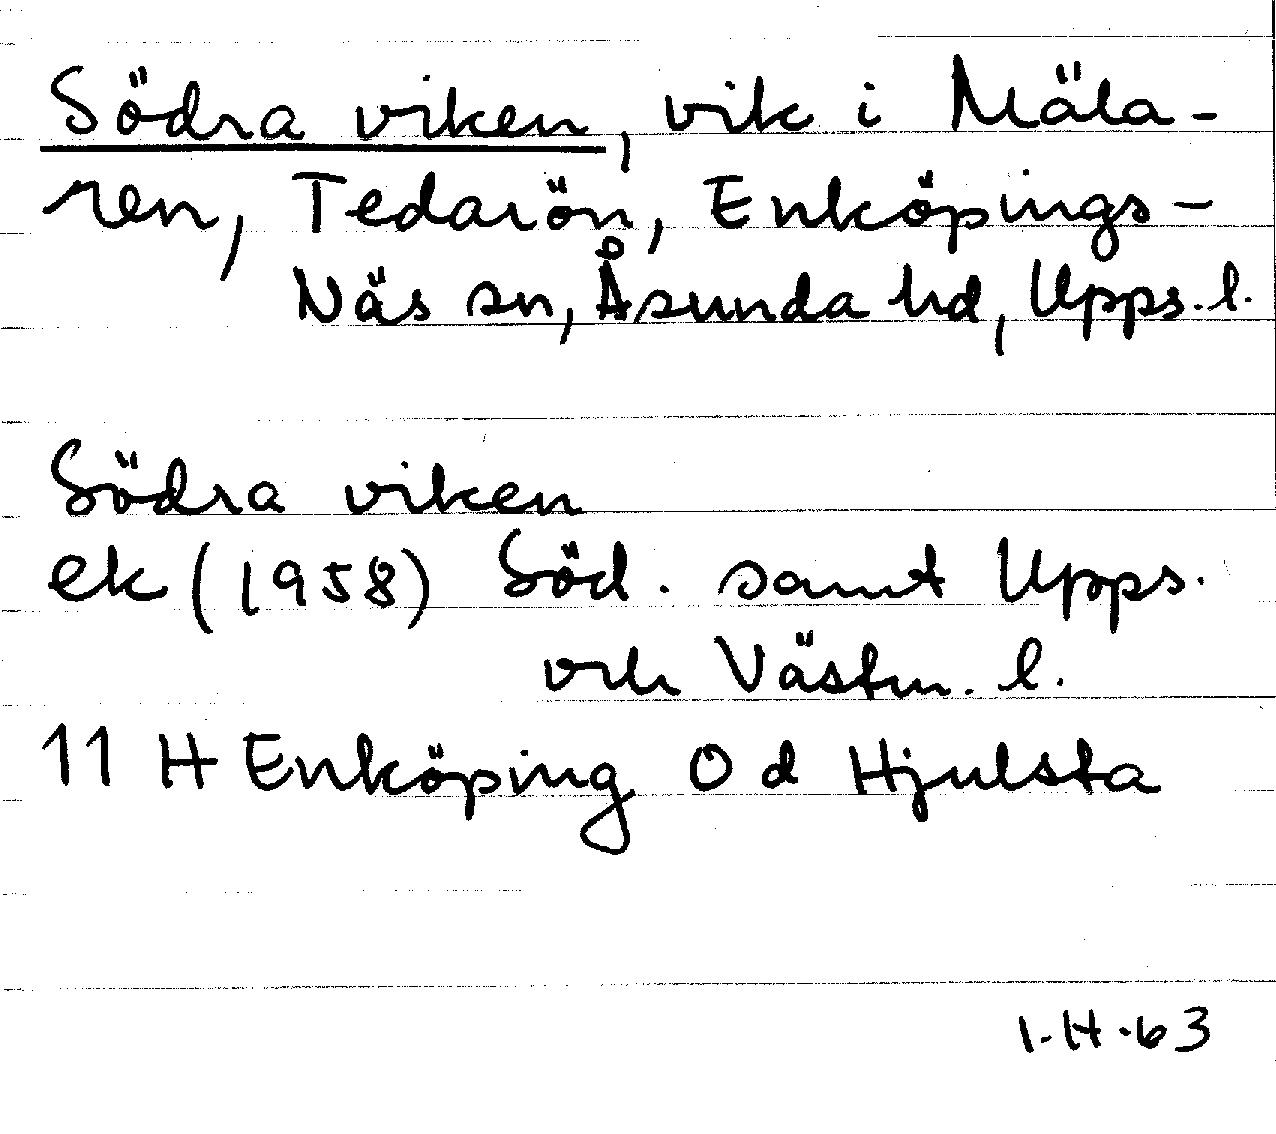 Södra viken, vik i Mäla-
ren, Tedarön, Enköpings-
Näs sn, Åsunda hd, Upps. l.
Södra viken
ek (1958) Söd. samt Upps.
och Västm. l.
11 H Enköping 0 d Hjulsta
I.H.63